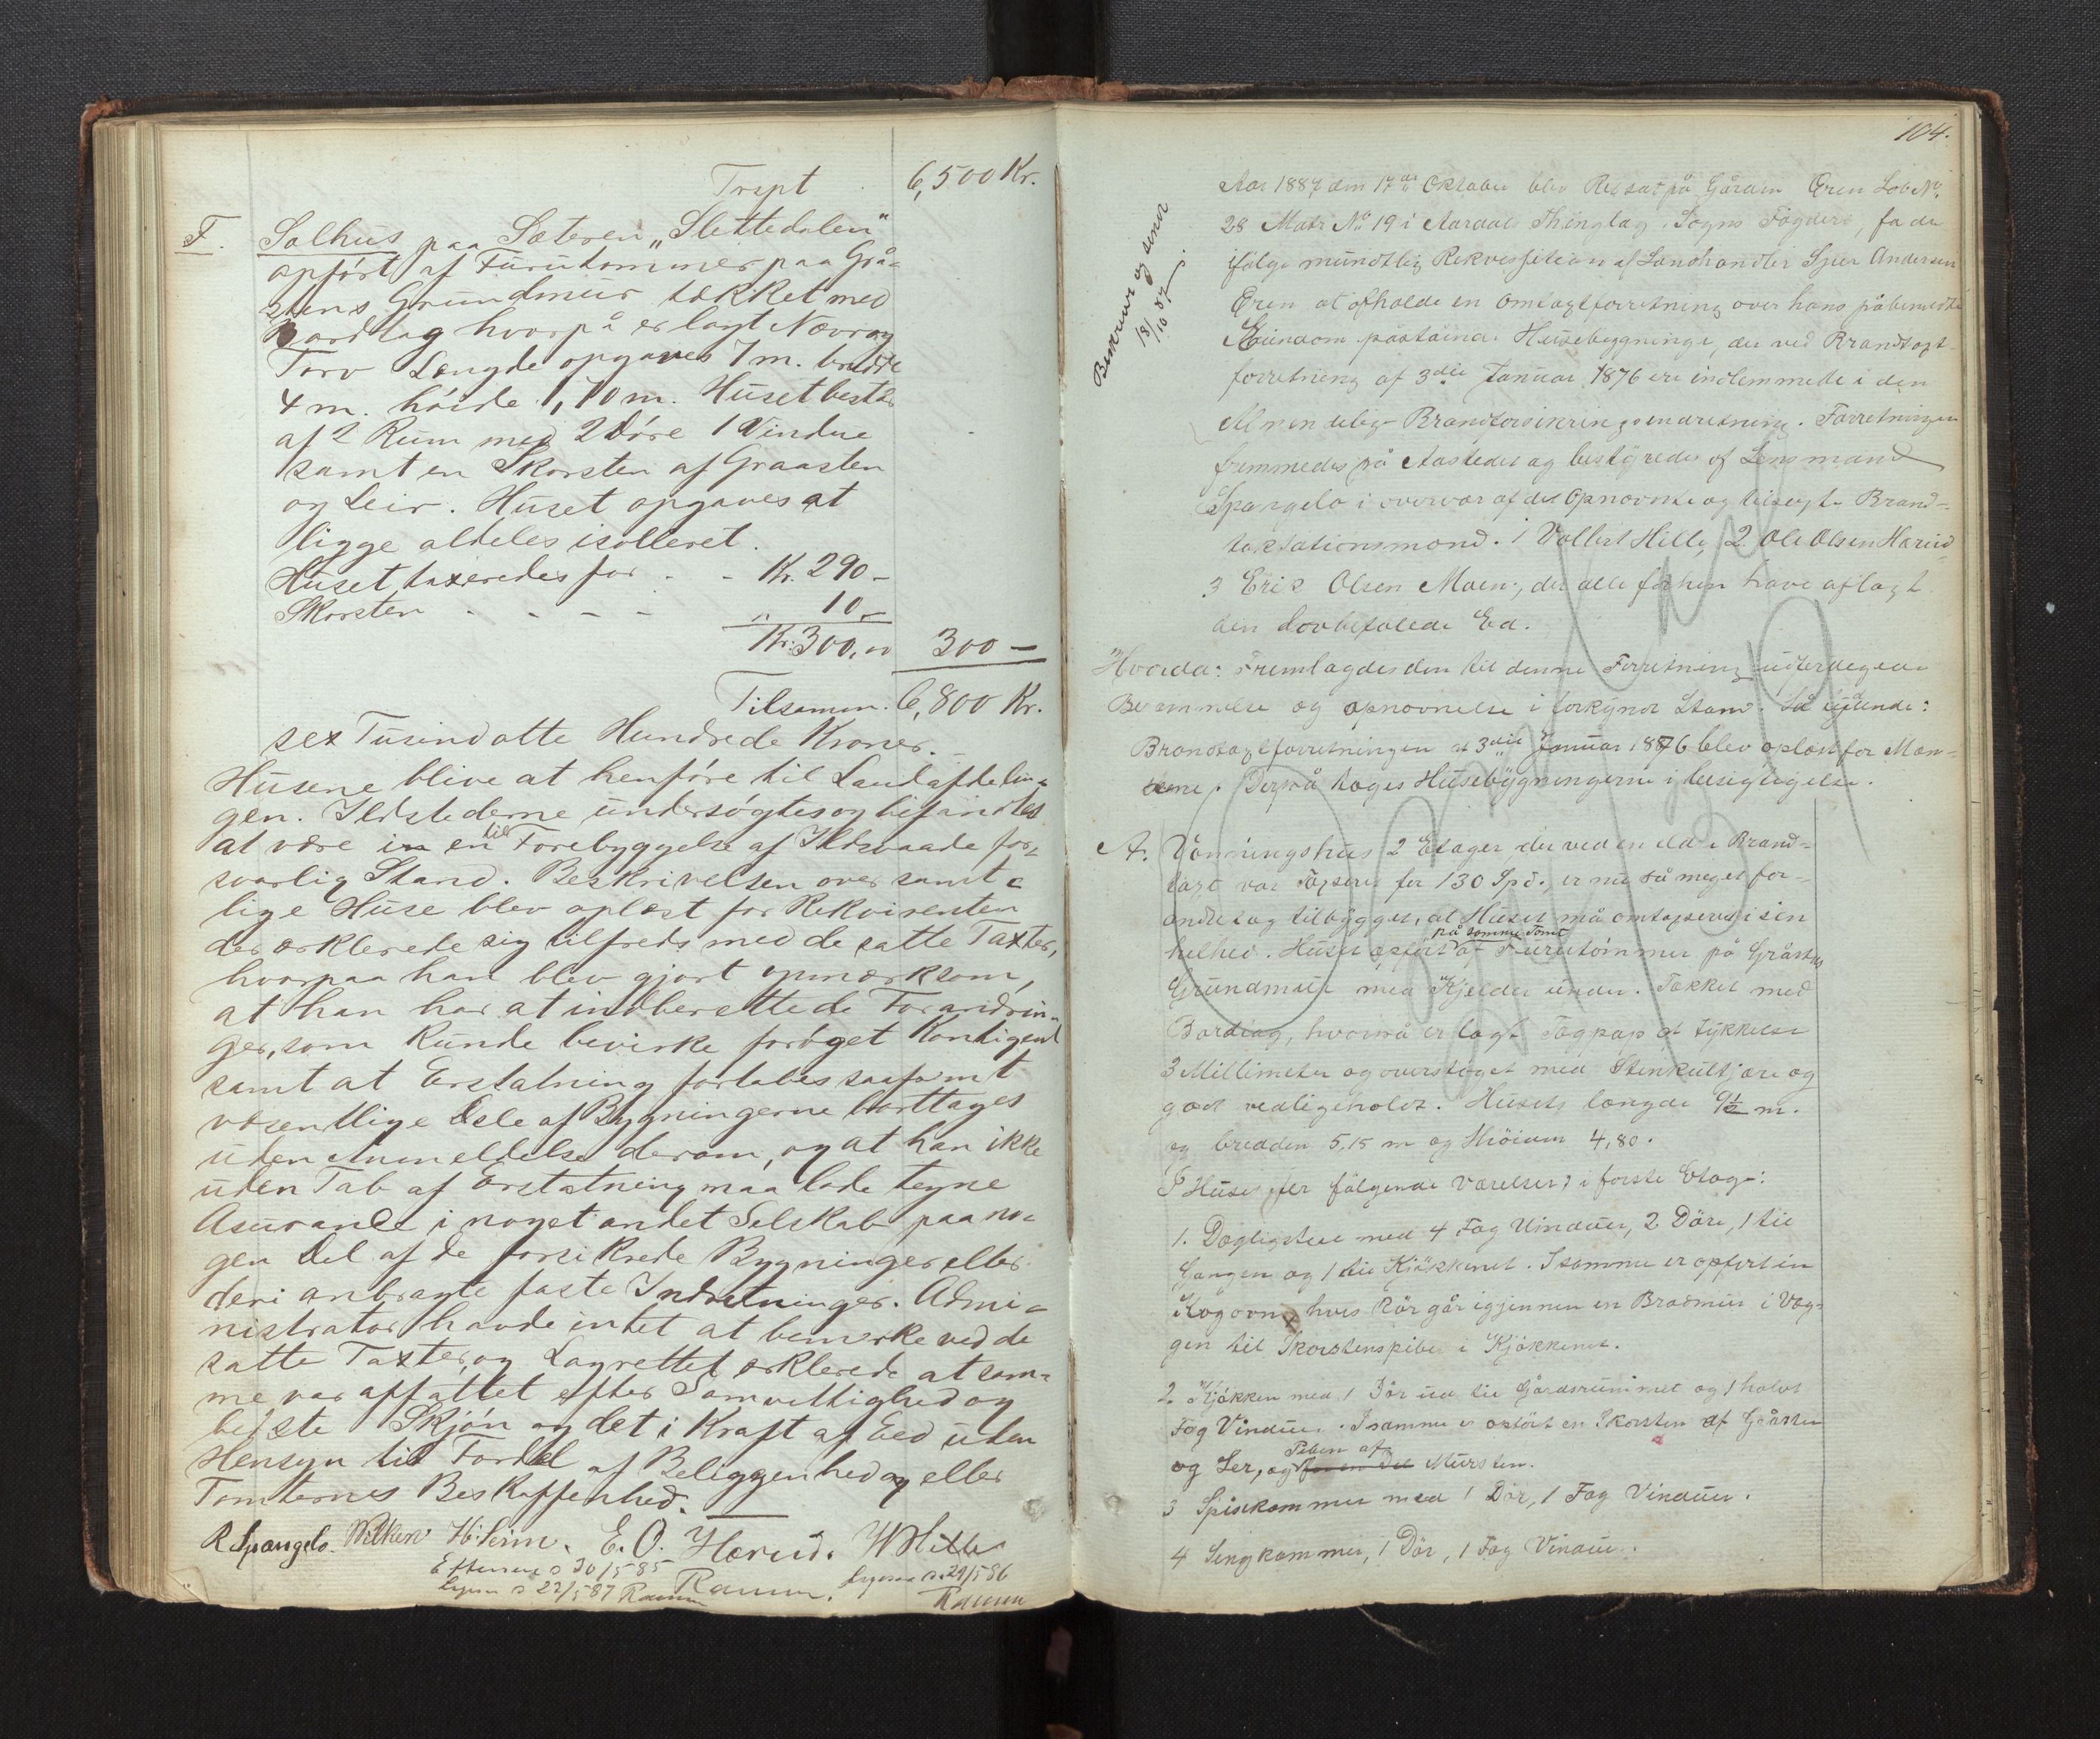 Trspt 6,500 Kr.
F. Sælhus paa Sæteren „Slettedalen"
opført af Furutømmer paa Grå-
stens Grundmur tækket med
Bordtag hvorpå er lagt Næver og
Torv Længde opgaves 7 m. bredde
4 m. høide 1,70 m. Huset består
af 2 Rum med 2 Døre 1 Vindue
samt en Skorsten af Graasten
og Leir. Huset opgaves at
ligge aldeles isolleret.
Huset taxeredes for . - Kr. 290 -
Skorsten - - - - „ 10 -
Kr. 300,00 300 —
Tilsamm. 6,800 Kr.
sex Tusind otte Hundrede Kroner.
Husene blive at henføre til Landafdelin-
gen. Ildstederne undersøgtes og befandtes
at være i en til Forebyggelse af Ildsvaade for-
svarlig Stand. Beskrivelsen over samt-
lige Huse blev oplæst for Rekvirenten
der erklerede sig tilfreds med de satte Taxter,
hvorpaa han blev gjort opmærksom,
at han har at indberette de Forandrin-
ger, som kunde bevirke forøget Kontigent
samt at Erstatning fortabes saafremt
væsentlige Dele af Bygningerne borttages
uden Anmeldelse derom, og at han ikke
uden Tab af Erstatning maa lade tegne
Asurance i noget andet Selskab paa no-
gen Del af de forsikrede Bygninger eller
deri anbragte faste Indretninger. Admi-
nistrator havde intet at bemerke ved de
satte Taxter, og Lagrettet erklerede at sam-
me var affattet efter Samvittighed og
bedste Skjøn og det i Kraft af Eed uden
Hensyn til Fordel af Beliggenhed og eller
Tomternes Beskaffenhed.
R Spangelo. Wilken H. Seim. E. O. Hærud. W Hille
Eftersees 30/5 85 Ramm. 29/5 86
22/5 87 Ramm Ramm
104.
Aar 1887 den 17de Oktober blev Ret sat på Gården Øren Løb No.
28 Matr No 19 i Aardals Thinglag, Sogns Fogderi, for da
ifølge mundtlig Rekvisition af Landhandler Sjur Andersen
Øren at afholde en Omtaxtforretning over hans påbemeldte
Eiendom påstående Husebygninge, der ved Brandtaxt-
forretning af 3die Januar 1876 ere indlemmede i den
Almendelig Brandforsikringsindretning. Forretningen
fremmedes på Aastedet og bestyredes af Lensmand
Spangelo i overvær af de Opnævnte og tilsagte Brand-
taxtationsmænd. 1 Volbert Hille, 2 Ole Olsen Hærud
3 Erik Olsen Moen, der alle forhen have aflagt
den lovbefalede Ed.
Bemerines og senest
18/10 87
Hvorda: Fremlagdes den til denne Forretning udferdigede
Berammelse og opnævnelse i forkyndt Stand. Så lydende:
Brandtaxtforretningen af 3die Januar 1876 blev oplæst for Mæn-
dene. Derpå toges Husebygningerne i besigtigelse.
A. Vånningshus 2 Etager, der ved en eldre Brand-
taxt var Taxeret for 130 Spd. er nu så meget for-
andret og tilbygget, at Huset må omtaxeres i sin
helhed. Huset opført på samme Tomt af Furutømmer på Gråstens
Grundmur med Kjelder under. Tækket med
Bordtag, hvorpå er lagt Tagpap af tykkelse
3 Millimeter og overstrøget med Stenkultjære og
godt vedligeholdt. Husets længde 9½ m.
og bredden 5,15 m og Høiden 4,80.
I Huset er følgende Værelser; i første Etage:
1. Dagligstue med 4 Fag Vinduer, 2 Døre, 1 til
Gangen og 1 til Kjøkkenet. I samme er opført en
Kogovn, hvis Rør går igjennem en Brandmur i Væg-
gen til Skorstenspiben i Kjøkkenet.
2. Kjøkken med 1 Dør ud til Gårdsrummet og 1 halvt
Fag Vinduer. I samme er opført en Skorsten af Gråsten
og Ler, og Piben af for en del Mursten.
3 Spiskammer med 1 Dør, 1 Fag Vinduer.
4 Sengkammer, 1 Dør, 1 Fag Vinduer.